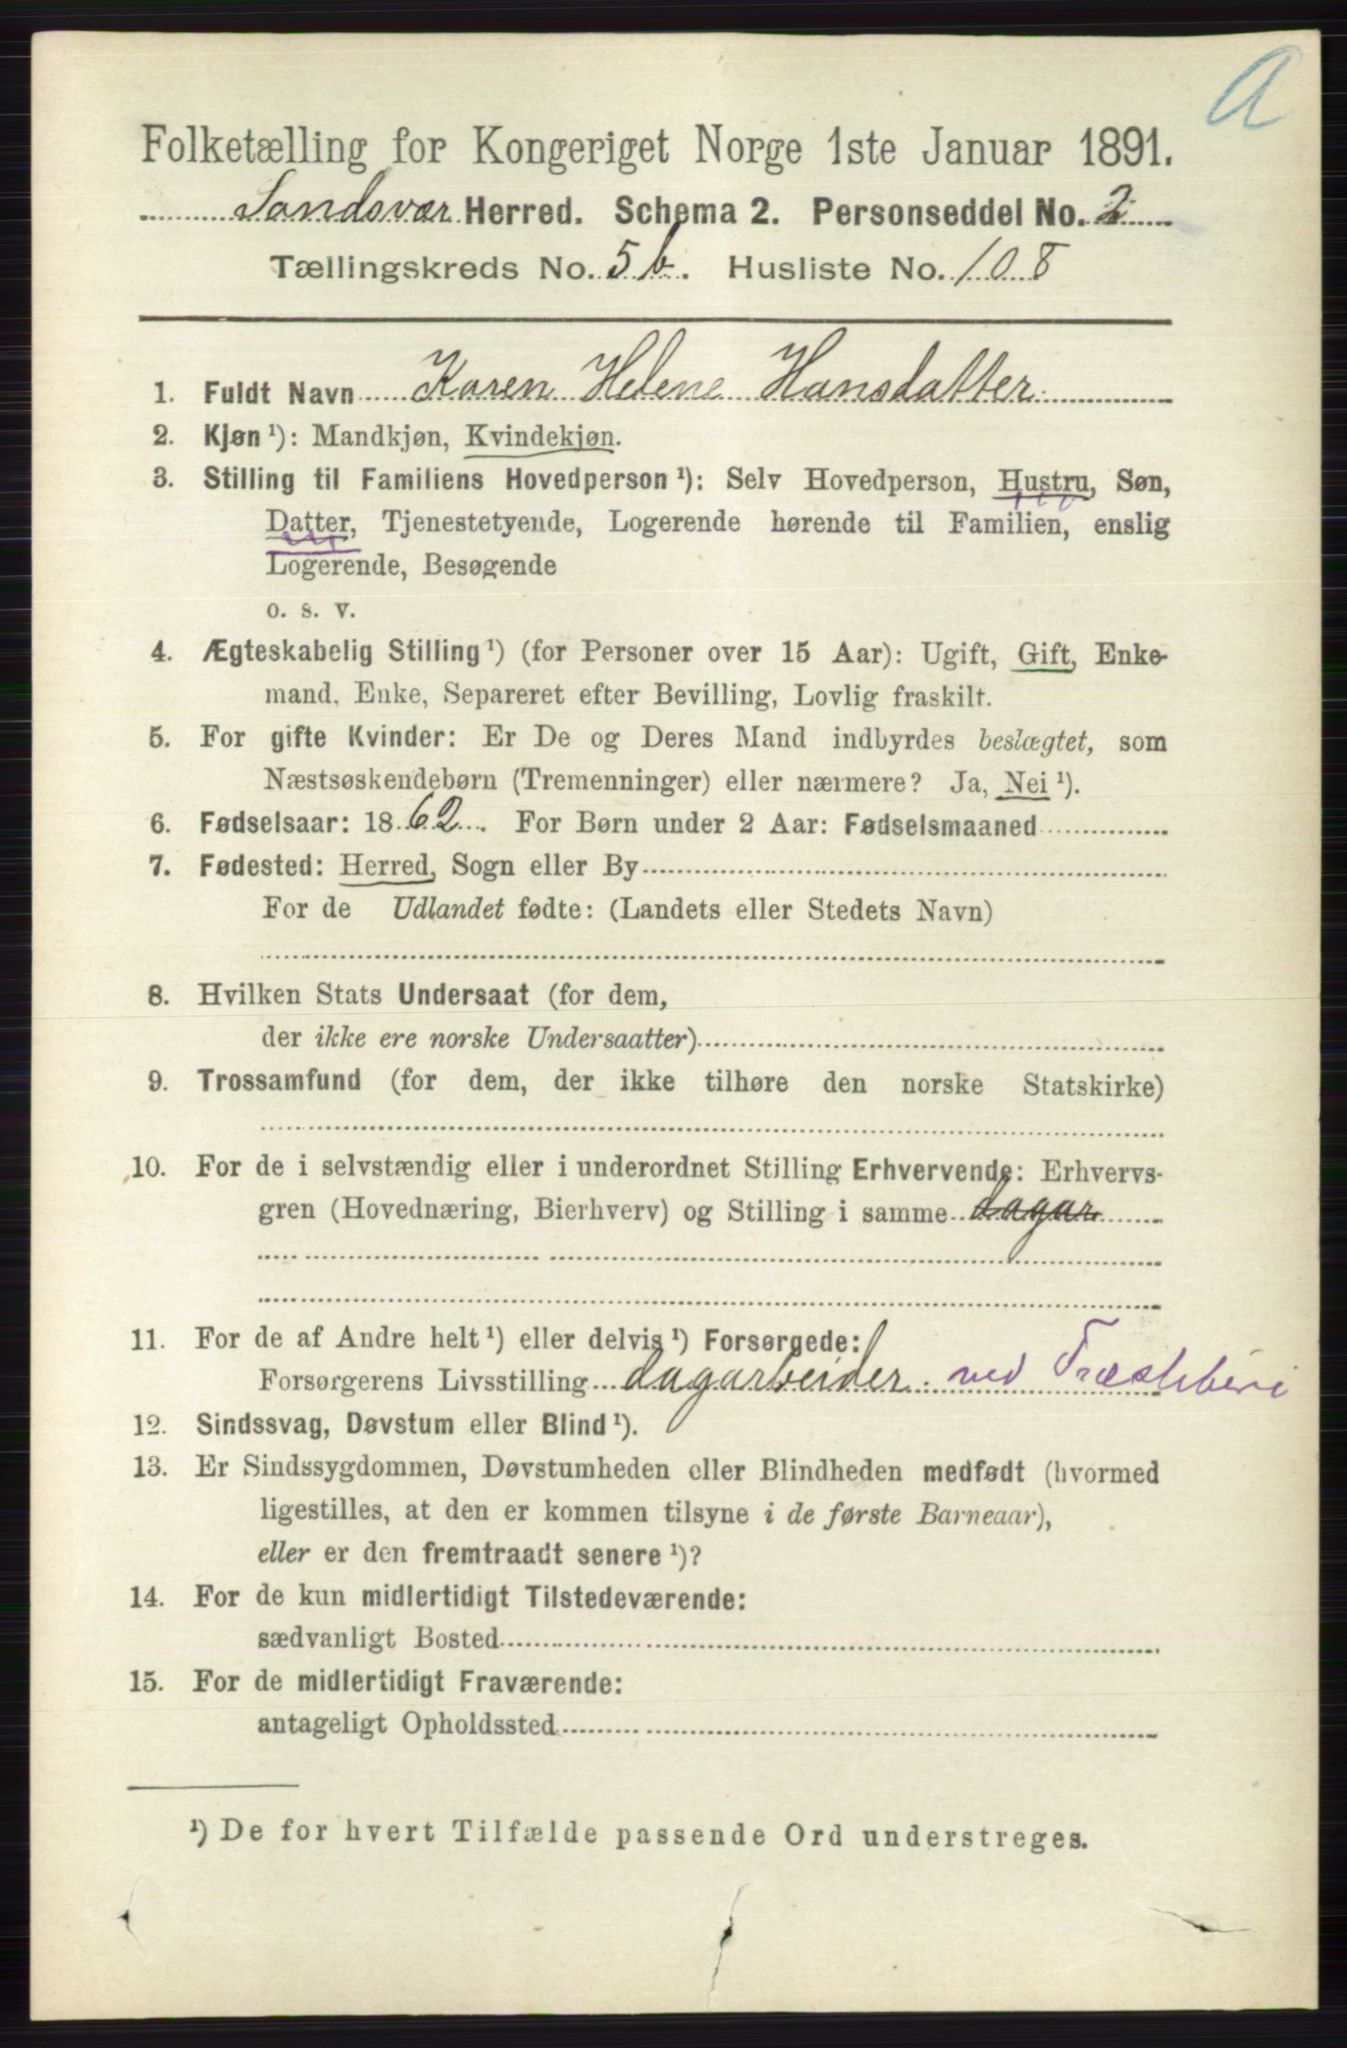 A
Folketælling for Kongeriget Norge 1ste Januar 1891.
Sandsvær Herred. Schema 2. Personseddel No. 2
Tællingskreds No. 5b. Husliste No. 108
1. Fuldt Navn Karen Helene Hansdatter
2. Kjøn ¹): Mandkjøn, Kvindekjøn.
3. Stilling til Familiens Hovedperson ¹): Selv Hovedperson, Hustru, Søn,
Datter, Tjenestetyende, Logerende hørende til Familien, enslig
Logerende, Besøgende
o. s. v.
4. Ægteskabelig Stilling ¹) (for Personer over 15 Aar): Ugift, Gift, Enke-
mand, Enke, Separeret efter Bevilling, Lovlig fraskilt.
5. For gifte Kvinder: Er De og Deres Mand indbyrdes beslægtet, som
Næstsøskendebørn (Tremenninger) eller nærmere? Ja, Nei ¹).
6. Fødselsaar: 1862. For Børn under 2 Aar: Fødselsmaaned
7. Fødested: Herred, Sogn eller By
For de Udlandet fødte: (Landets eller Stedets Navn)
8. Hvilken Stats Undersaat (for dem,
der ikke ere norske Undersaatter)
9. Trossamfund (for dem, der ikke tilhøre den norske Statskirke)
10. For de i selvstændig eller i underordnet Stilling Erhvervende: Erhvervs-
gren (Hovednæring, Bierhverv) og Stilling i samme dagar
11. For de af Andre helt ¹) eller delvis ¹) Forsørgede:
Forsørgerens Livsstilling dagarbeider ved Træsliberi
12. Sindssvag, Døvstum eller Blind ¹).
13. Er Sindssygdommen, Døvstumheden eller Blindheden medfødt (hvormed
ligestilles, at den er kommen tilsyne i de første Barneaar),
eller er den fremtraadt senere ¹)?
14. For de kun midlertidigt Tilstedeværende:
sædvanligt Bosted
15. For de midlertidigt Fraværende:
antageligt Opholdssted
¹) De for hvert Tilfælde passende Ord understreges.